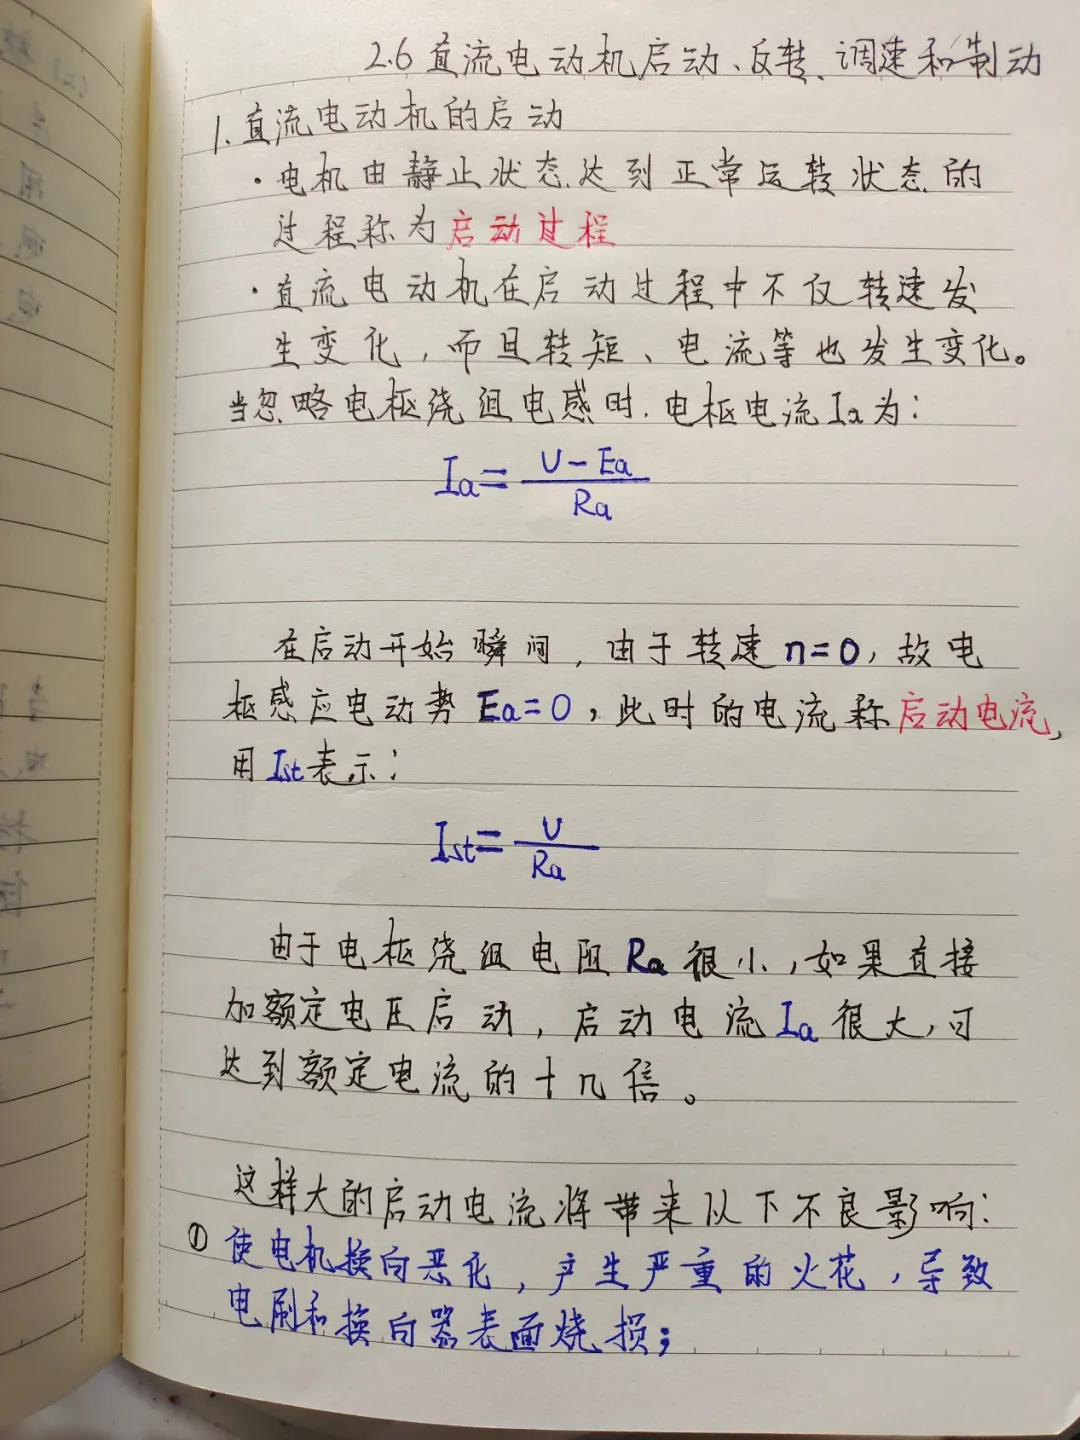 2.6 直流电动机启动、反转、调速和制动
1.直流电动机的启动
·电机由静止状态达到正常运转状态的
过程称为启动过程
·直流电动机在启动过程中不仅转速发
生变化，而且转矩、电流等也发生变化。
当忽略电枢绕组电感时.电枢电流Ia为：
Ia=(U-Ea)/Ra
在启动开始瞬间，由于转速n=0，故电
枢感应电动势Ea=0，此时的电流称启动电流，
用Ist表示：
Ist=U/Ra
由于电枢绕组电阻Ra很小，如果直接
加额定电压启动，启动电流Ia很大，可
达到额定电流的十几倍。
这样大的启动电流将带来以下不良影响：
① 使电机换向恶化，产生严重的火花，导致
电刷和换向器表面烧损；